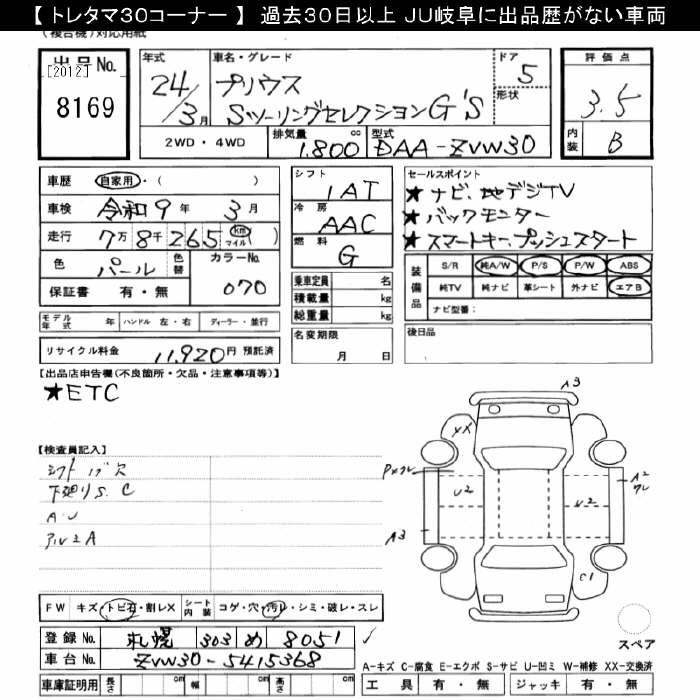 【 トレタマ30コーナー 】 過去30日以上 JU岐阜に出品歴がない車両
(複合機)対応用紙
出品No.
[2012]
8169
年式 車名・グレード ドア
24/3月 プリウス 5
Sツーリングセレクション G'S 形状
2WD・4WD 排気量 1,800 cc 型式 DAA-ZVW30
評価点
3.5
内装 B
車歴 自家用・( )
車検 令和9年 3月
走行 7万8千265 km マイル ( )
色 パール 色替 カラーNo. 070
保証書 有・無
シフト 1AT
冷房 AAC
燃料 G
乗車定員 名
積載量 kg
総重量 kg
セールスポイント
★ナビ、地デジTV
★バックモニター
★スマートキー、プッシュスタート
装備品 S/R 純A/W P/S P/W ABS
純TV 純ナビ 革シート 外ナビ エアB
ナビ型番:
モデル年式 年 ハンドル 左・右 ディーラー・並行
リサイクル料金 11,920円 預託済
名変期限
月 日
後日品
【出品店申告欄(不良箇所・欠品・注意事項等)】
★ETC
【検査員記入】
下廻りS.C
A・U
アルミA
A3
XX
U2
U2
A2
A3
C1
スペア
FW キズ・トビ石・割レX シート内装 コゲ・穴・汚レ・シミ・破レ・スレ
登録No. 札幌 303 め 8051
車台No. ZVW30-5415368
車庫証明用 長さ cm 幅 cm 高さ cm
A-キズ C-腐食 E-エクボ S-サビ U-凹ミ W-補修 XX-交換済
工具 有・無 ジャッキ 有・無